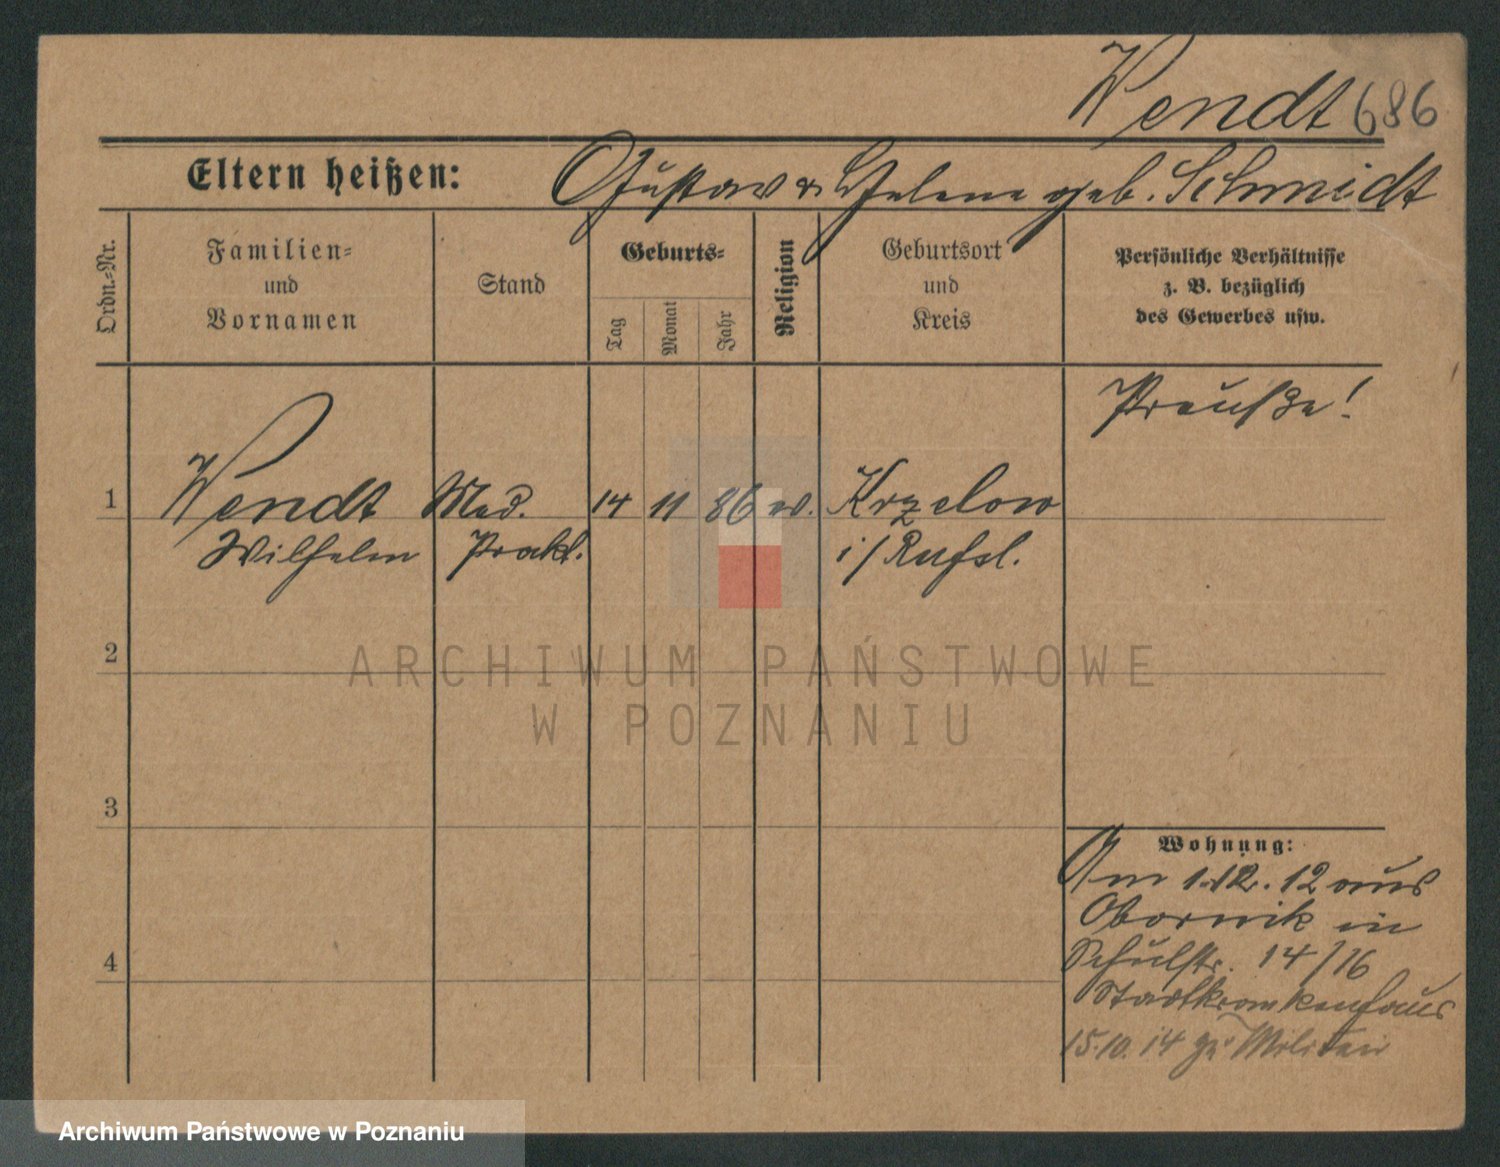 Wendt 686
Eltern heißen: Gustav u. Helene geb. Schmidt
Ordn.-Nr.
Familien-
und
Vornamen
Stand
Geburts-
Tag
Monat
Jahr
Religion
Geburtsort
und
Kreis
Persönliche Verhältnisse
z. B. bezüglich
des Gewerbes usw.
Preuße!
1 Wendt Med. 14 11 86 ev. Krzelow
Wilhelm Prakt. i/Rußl.
2
3
4
Wohnung:
Am 1.12.12 aus
Obornik in
Schulstr. 14/16
Stadtkrankenhaus
15.10.14 zu Militär
ARCHIWUM PAŃSTWOWE
W POZNANIU
Archiwum Państwowe w Poznaniu